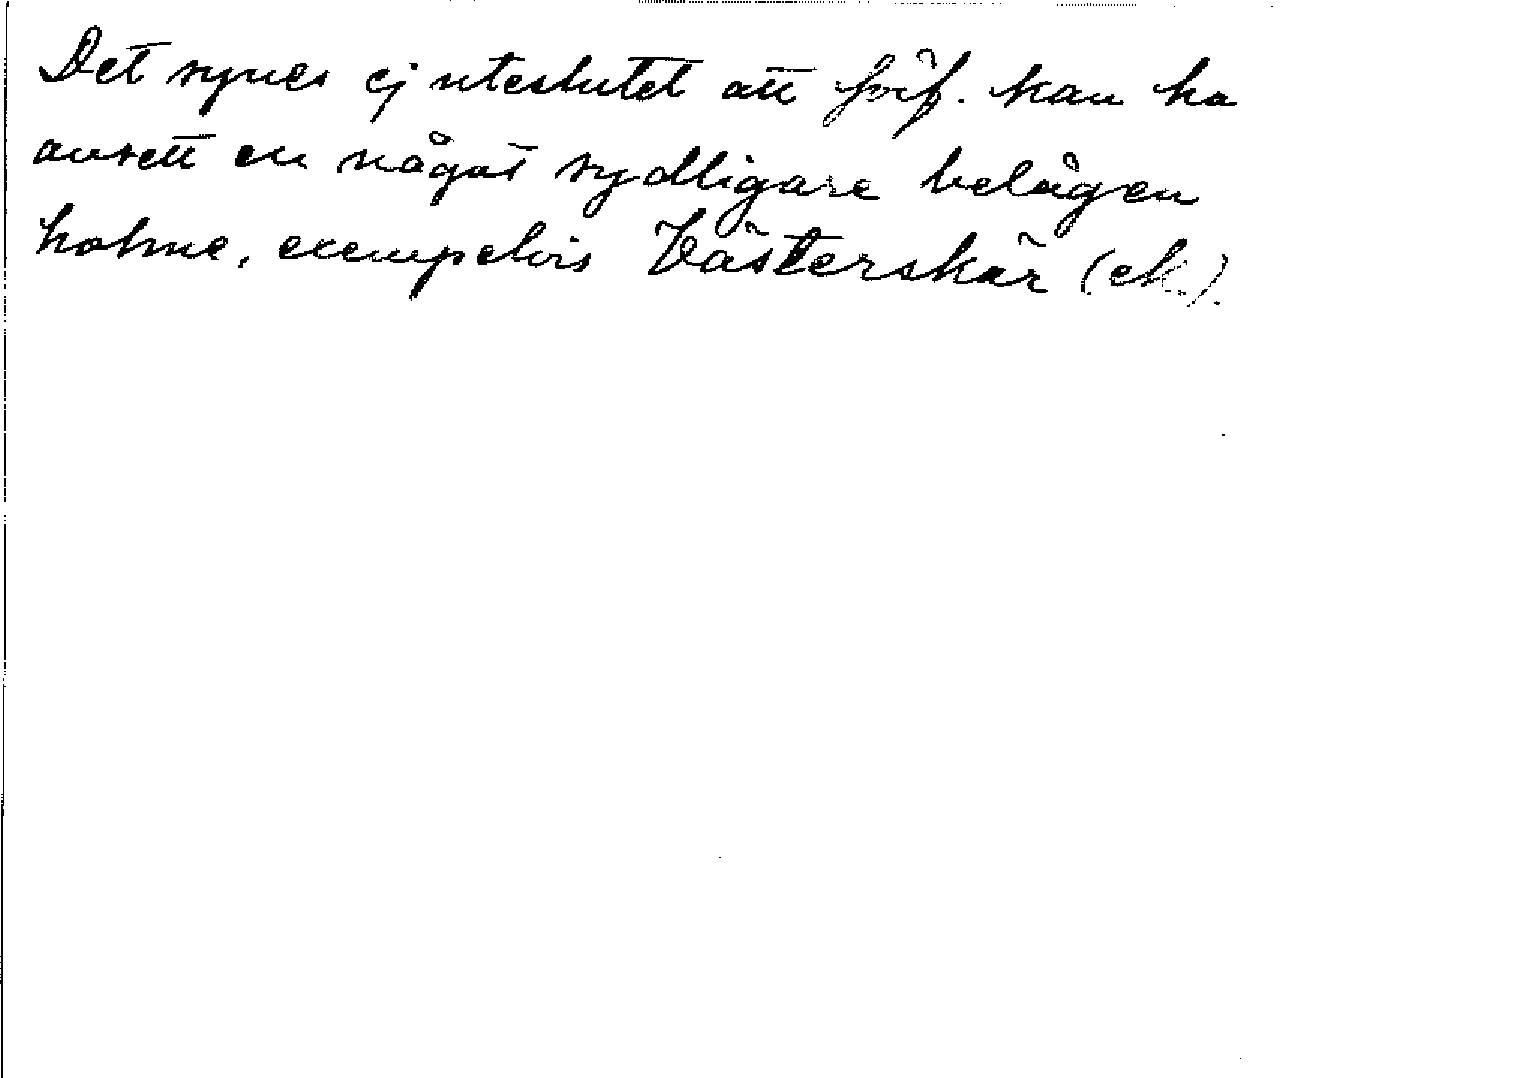 Det synes ej uteslutet att förf. kan ha
avsett en något sydligare belägen
holme, exempelvis Västerskär (ek.).